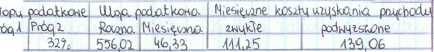 podatkowe Ulga podatkowa Miesięczne koszty uzyskania przychodu
Próg 2 Roczna Miesięczna zwykłe podwyższone
32% 556,02 46,33 111,25 139,06